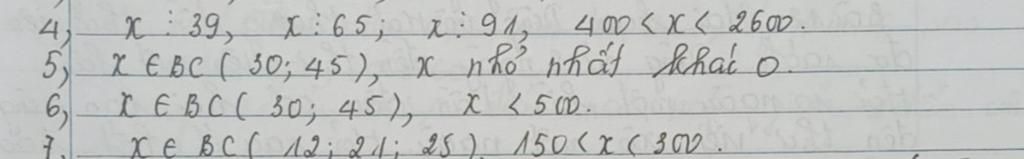 4, x ⋮ 39, x ⋮ 65; x ⋮ 91, 400 < x < 2600.
5, x ∈ BC (30; 45), x nhỏ nhất khác 0.
6, x ∈ BC (30; 45), x < 500.
7, x ∈ BC (12; 21; 25) 150 < x < 300.